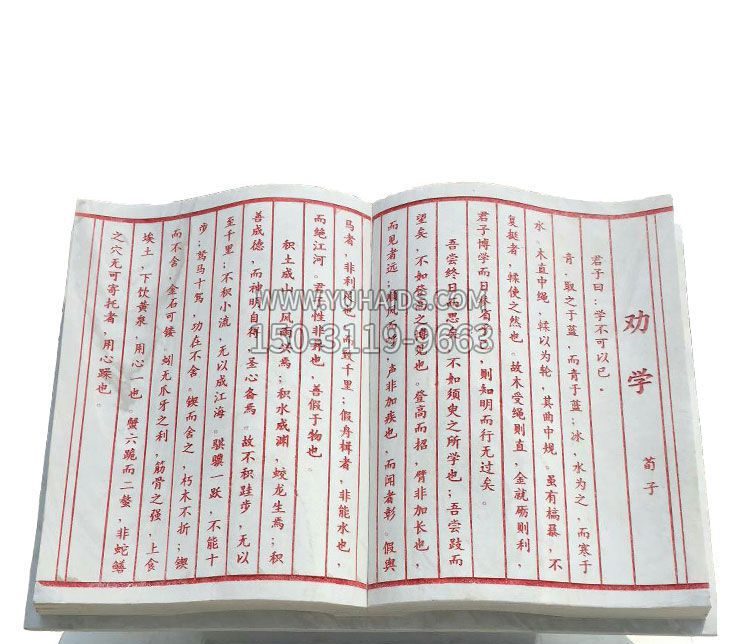 劝学
荀子
君子曰：学不可以已。
青，取之于蓝，而青于蓝；冰，水为之，而寒于
水。木直中绳，輮以为轮，其曲中规。虽有槁暴，不
复挺者，輮使之然也。故木受绳则直，金就砺则利，
君子博学而日参省乎己，则知明而行无过矣。
吾尝终日而思矣，不如须臾之所学也；吾尝跂而
望矣，不如登高之博见也。登高而招，臂非加长也，
而见者远；顺风而呼，声非加疾也，而闻者彰。假舆
马者，非利足也，而致千里；假舟楫者，非能水也，
而绝江河。君子性非异也，善假于物也。
积土成山，风雨兴焉；积水成渊，蛟龙生焉；积
善成德，而神明自得，圣心备焉。故不积跬步，无以
至千里；不积小流，无以成江海。骐骥一跃，不能十
步；驽马十驾，功在不舍。锲而舍之，朽木不折；锲
而不舍，金石可镂。蚓无爪牙之利，筋骨之强，上食
埃土，下饮黄泉，用心一也。蟹六跪而二螯，非蛇鳝
之穴无可寄托者，用心躁也。
WWW.YUHAIDS.COM
150-3119-9663